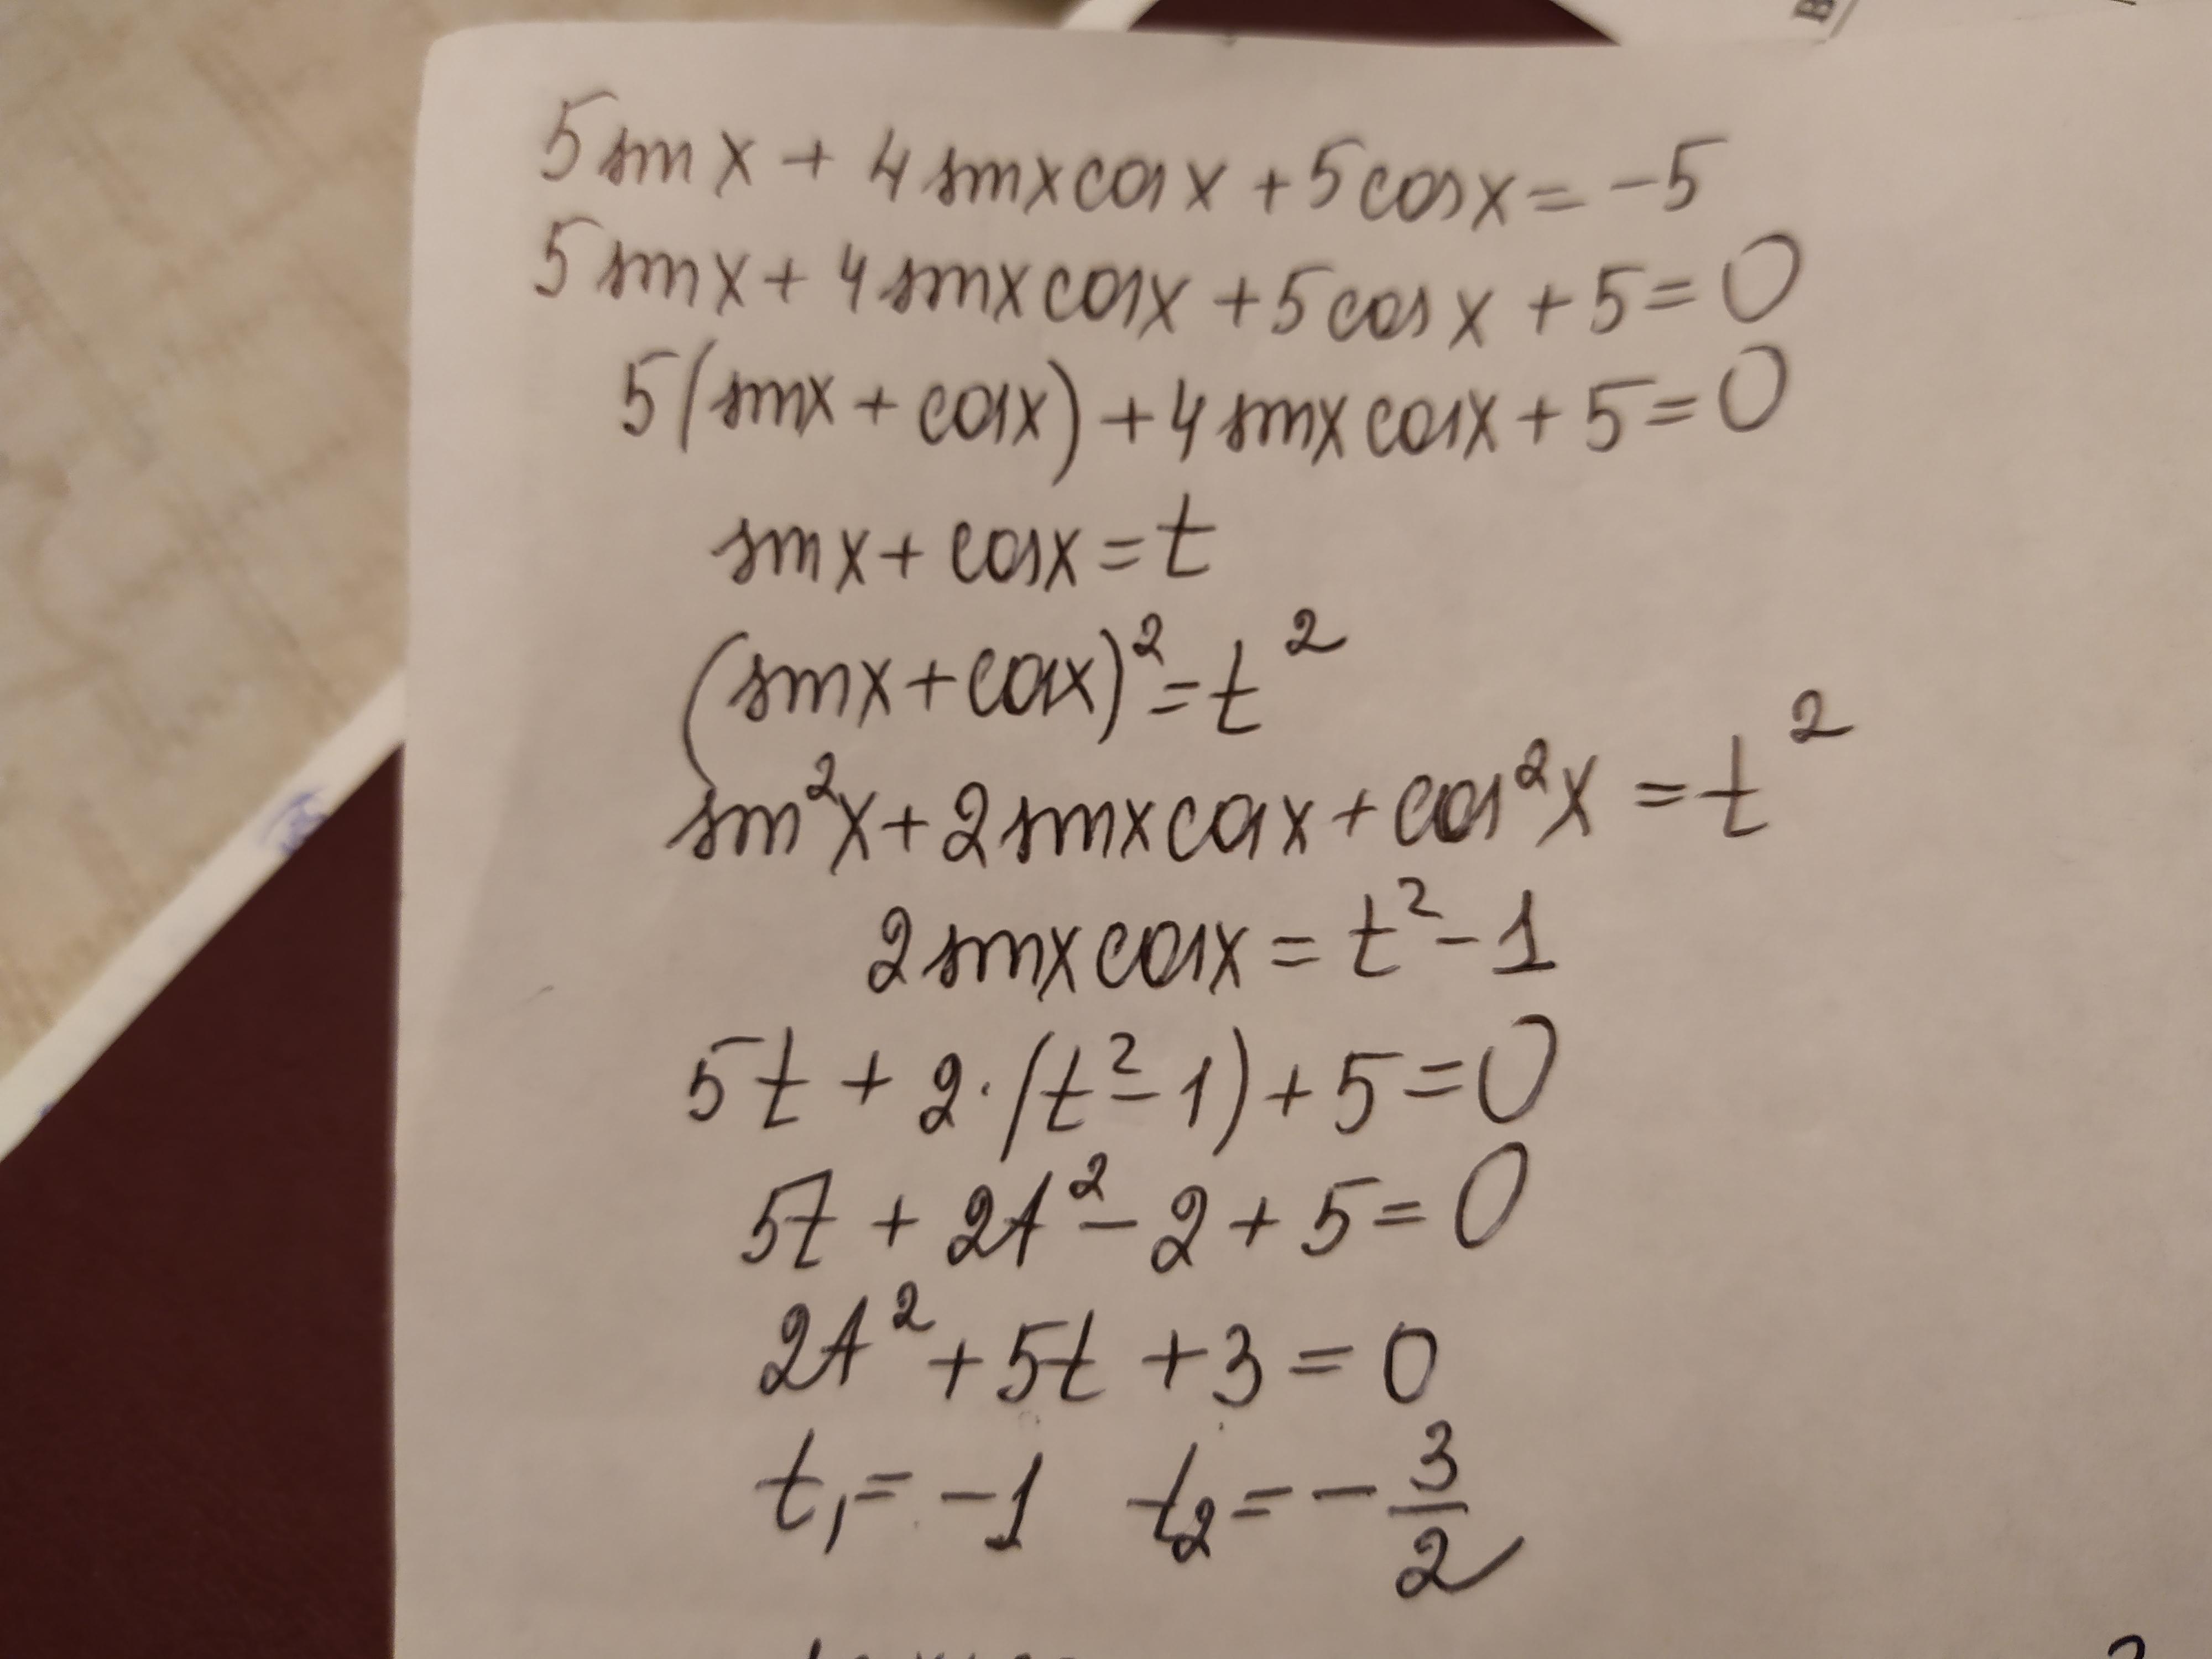 5 sin x + 4 sin x cos x + 5 cos x = -5
5 sin x + 4 sin x cos x + 5 cos x + 5 = 0
5(sin x + cos x) + 4 sin x cos x + 5 = 0
sin x + cos x = t
(sin x + cos x)² = t²
sin²x + 2 sin x cos x + cos²x = t²
2 sin x cos x = t² - 1
5t + 2·(t² - 1) + 5 = 0
5t + 2t² - 2 + 5 = 0
2t² + 5t + 3 = 0
t₁ = -1 t₂ = -3/2